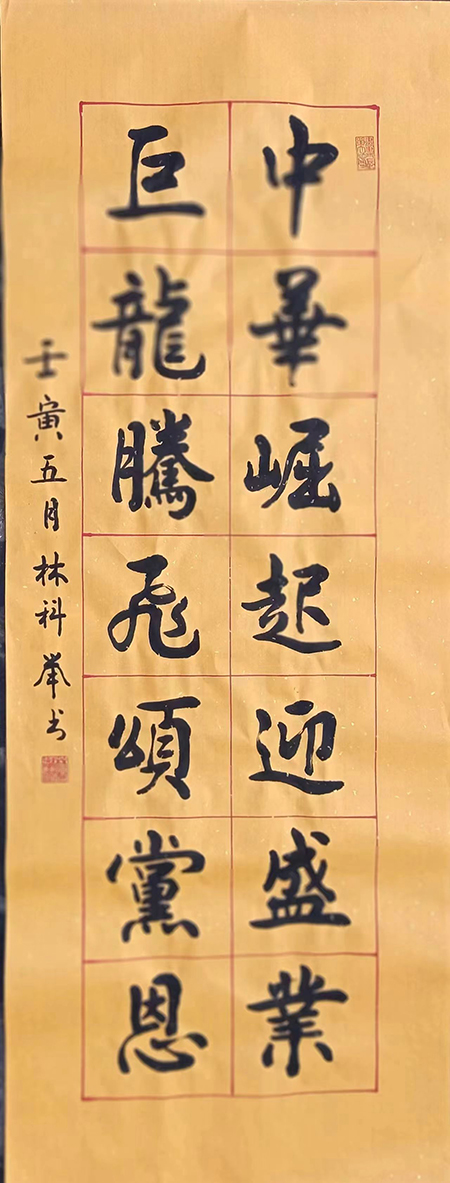 中華崛起迎盛業
巨龍騰飛頌黨恩
壬寅五月林科峯书